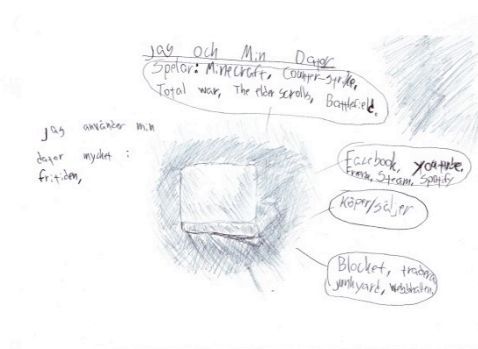 Jag och Min Dator
Spelar: Minecraft, Counter-strike,
Total war, The elder scrolls, Battlefield.
Jag använder min
dator mycket i
fritiden,
Facebook, youtube,
Steam, Spotify
Köper/säljer
Blocket, tradera,
junkyard, webbhallen,